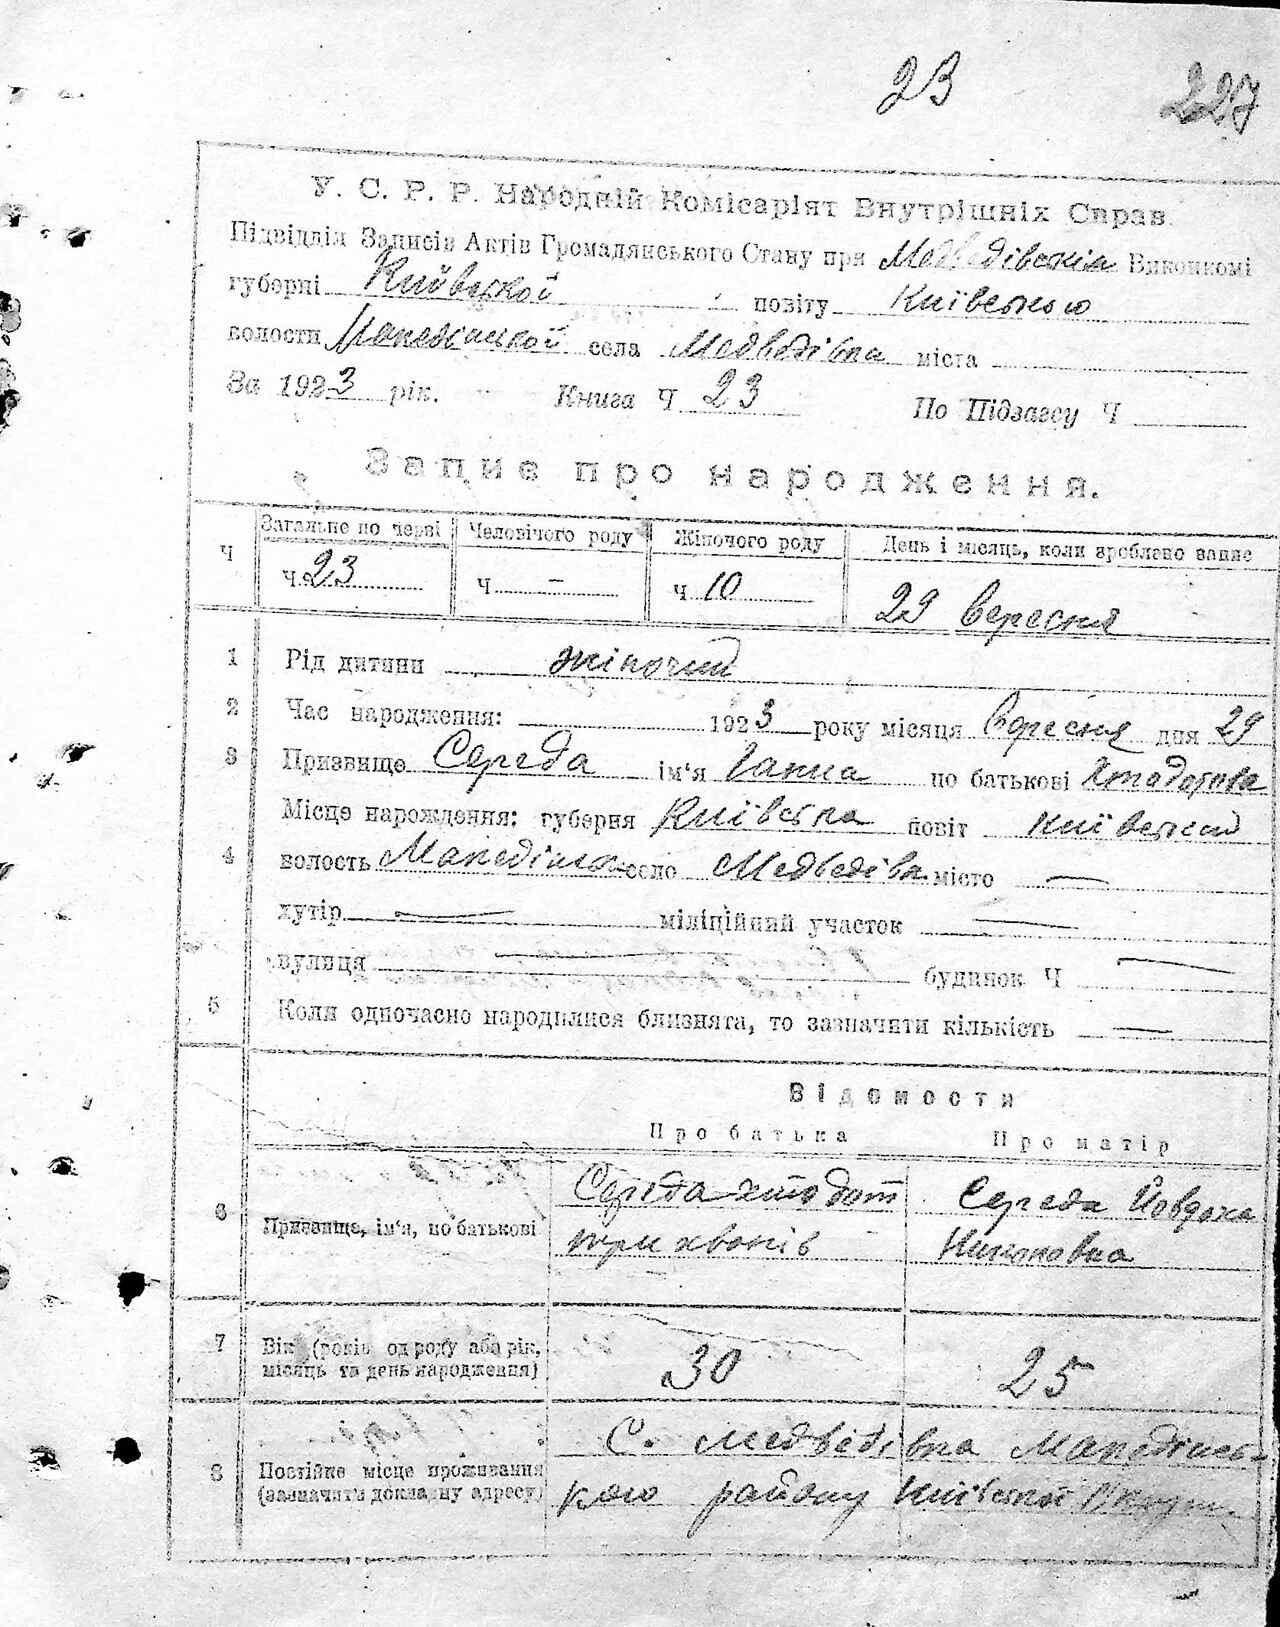 23 227
У. С. Р. Р. Народній Комісаріят Внутрішніх Справ.
Підвідділ Записів Актів Громадянського Стану при Медведівськім Виконкомі
губерні Київської повіту Київського
волости Македінської села Медведівка міста
За 1923 рік. Книга Ч 23 По Підзагсу Ч
Запис про народження.
Ч Загальне по черві Человічого роду Жіночого роду День і місяць, коли зроблено запис
Ч. 23 Ч — Ч 10 29 вересня
1 Рід дитини жіночий
2 Час народження: 1923 року місяця Вересня дня 29
3 Призвище Середа ім'я Ганна по батькові
Місце народження: губерня Київська повіт Київський
4 волость село Медведівка місто —
хутір — міліційний участок —
вулиця — будинок Ч —
5 Коли одночасно народилися близнята, то зазначити кількість —
Відомости
Про батька Про матір
6 Призвище, ім'я, по батькові Середа хтодот Середа Йовдоха
трихвонів
7 Вік (років од роду або рік, місяць та день народження) 30 25
8 Постійне місце проживання (зазначити докладну адресу) С. Медведівка Македінсь-
кого району Київської